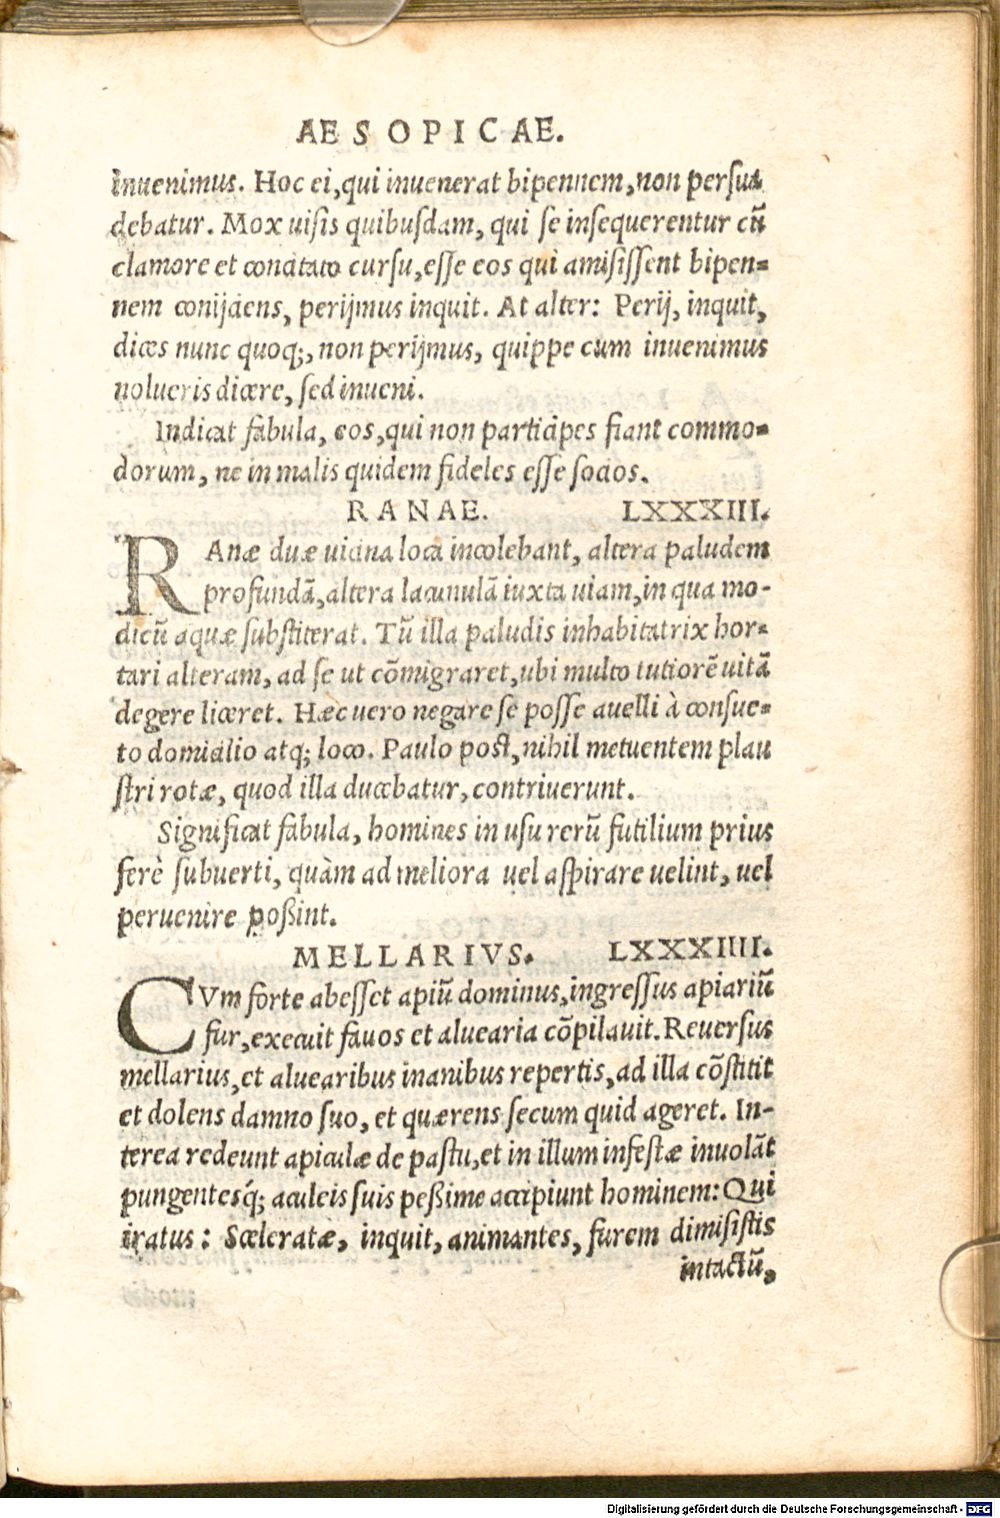 AESOPICAE.
inuenimus. Hoc ei, qui inuenerat bipennem, non persua
debatur. Mox uisis quibusdam, qui se insequerentur cũ
clamore et concitato cursu, esse eos qui amisissent bipen=
nem conijciens, perijmus inquit. At alter: Perij, inquit,
dices nunc quoq;, non perijmus, quippe cum inuenimus
nolueris dicere, sed inueni.
Indicat fabula, eos, qui non participes fiant commo=
dorum, ne in malis quidem fideles esse socios.
RANAE. LXXXIII.
RAnæ duæ uicina loca incolebant, altera paludem
profundã, altera lacunulã iuxta uiam, in qua mo-
dicũ aquæ substiterat. Tũ illa paludis inhabitatrix hor=
tari alteram, ad se ut cõmigraret, ubi multo tutiorẽ uitã
degere liceret. Hæc uero negare se posse auelli à consue=
to domicilio atq; loco. Paulo post, nihil metuentem plau
stri rotæ, quod illa ducebatur, contriuerunt.
Significat fabula, homines in usu rerũ futilium prius
ferè subuerti, quàm ad meliora uel aspirare uelint, uel
peruenire poßint.
MELLARIVS. LXXXIIII.
CVm forte abesset apiũ dominus, ingressus apiariũ
fur, execuit fauos et aluearia cõpilauit. Reuersus
mellarius, et aluearibus inanibus repertis, ad illa cõstitit
et dolens damno suo, et quærens secum quid ageret. In-
terea redeunt apiculæ de pastu, et in illum infestæ inuolãt
pungentesq́; aculeis suis peßime accipiunt hominem: Qui
iratus: Sceleratæ, inquit, animantes, furem dimisistis
intactũ,
Digitalisierung gefördert durch die Deutsche Forschungsgemeinschaft - DFG